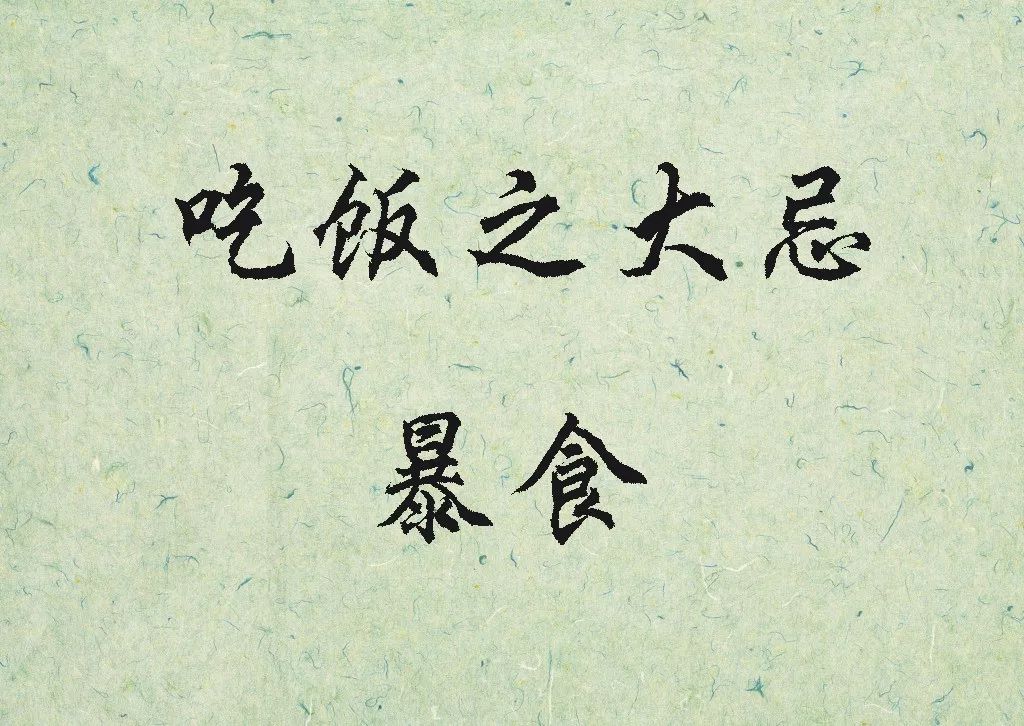 吃饭之大忌
暴食